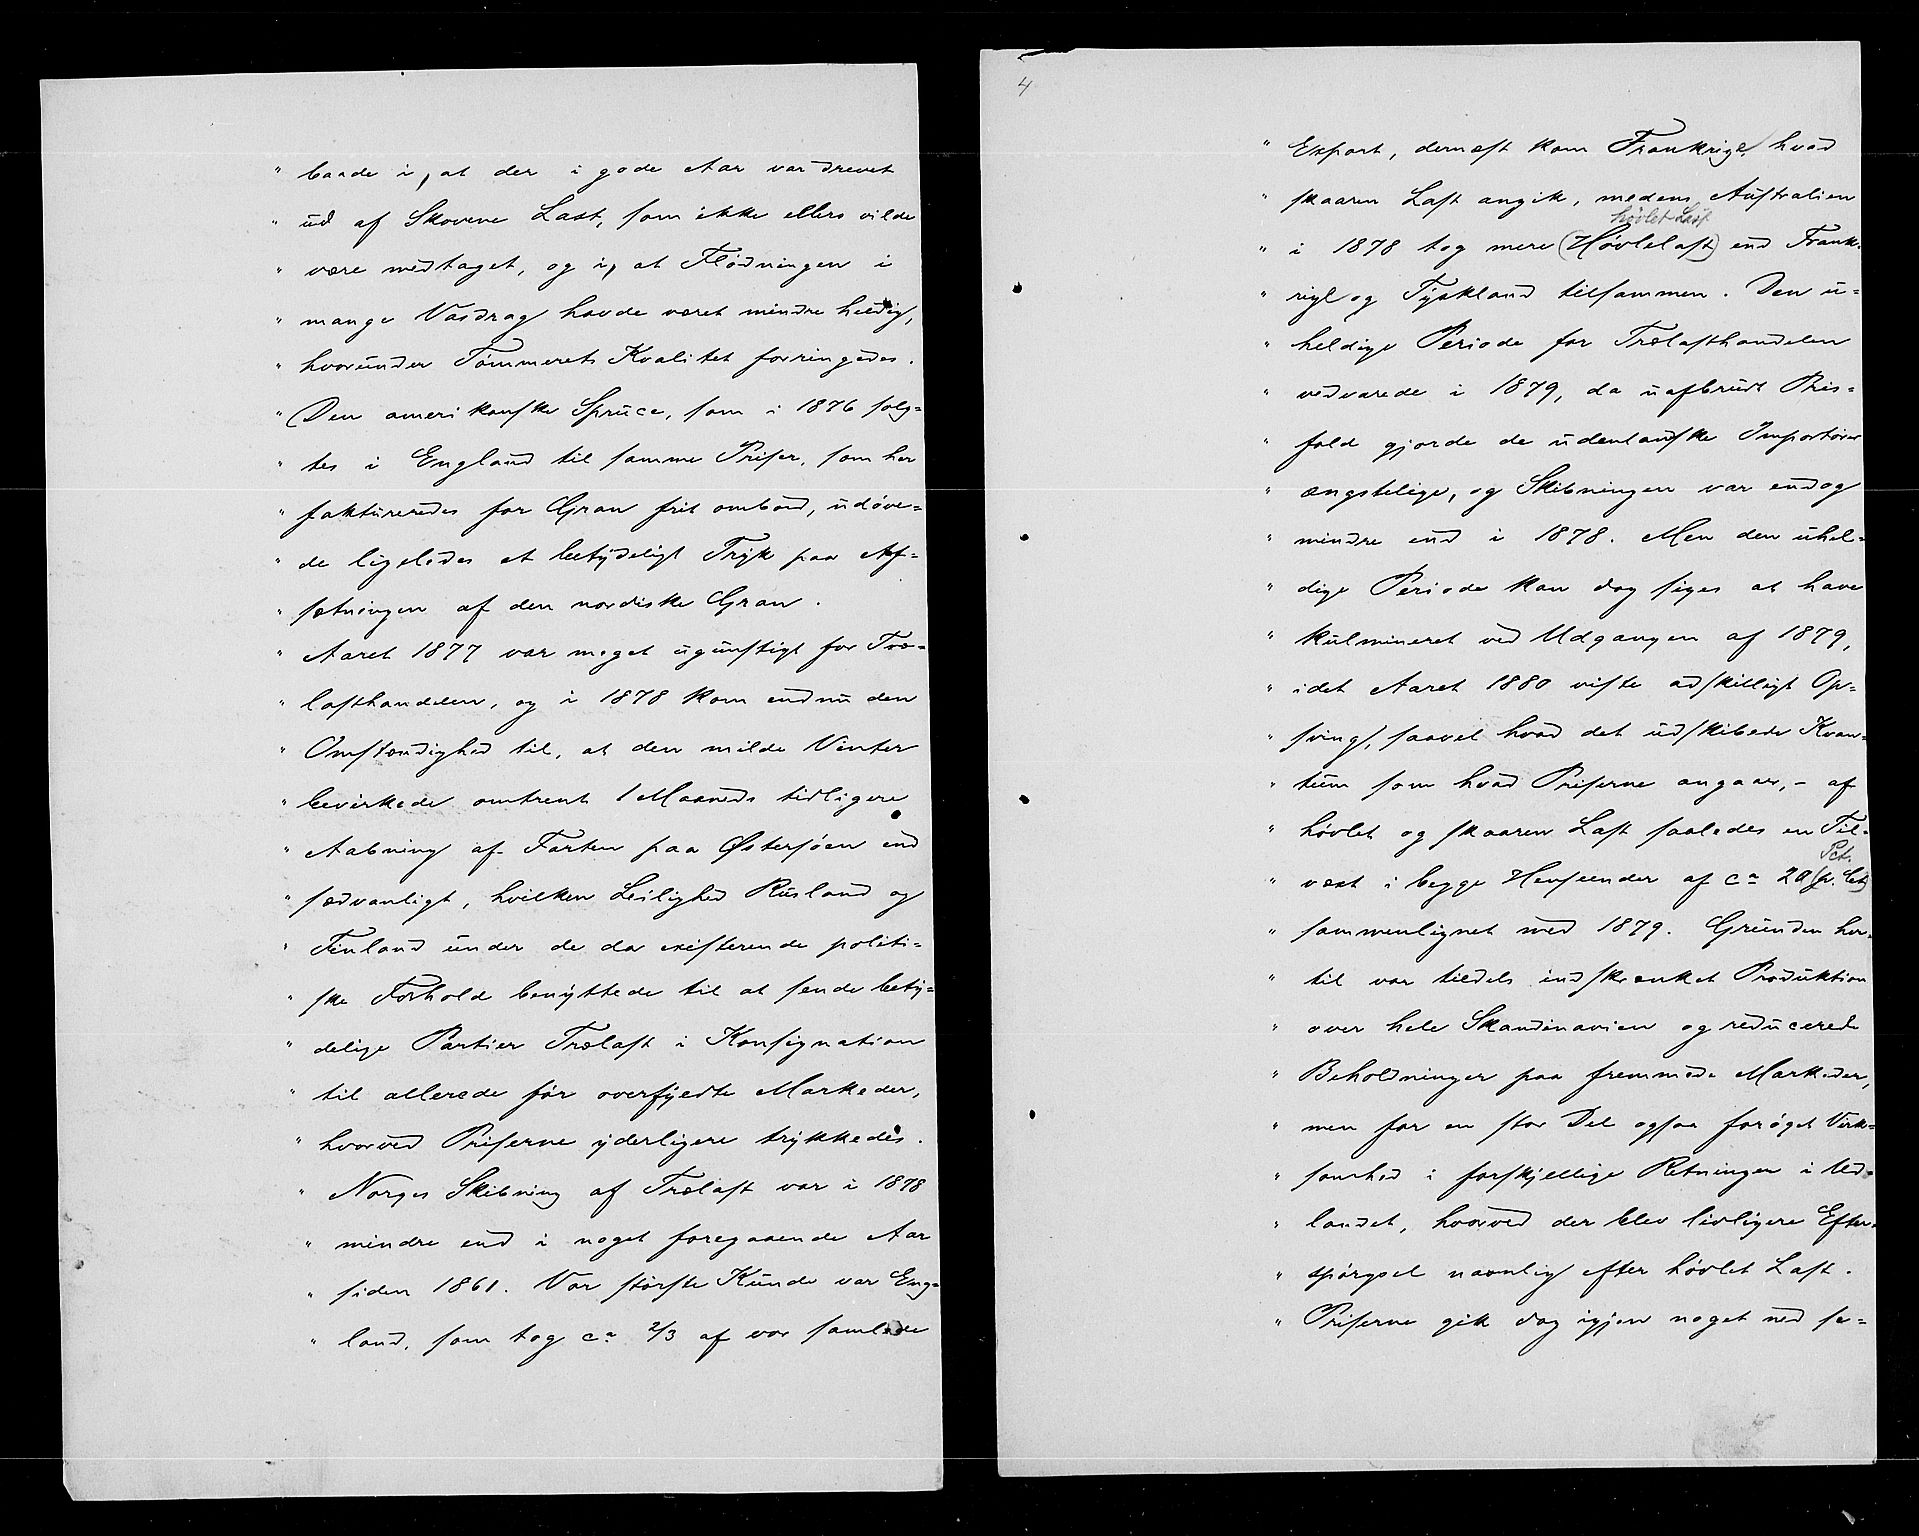 " baade i, at der i gode Aar var drevet
" ud af Skovene Last, som ikke ellers vilde
" være medtaget, og i, at Flødningen i
" mange Vasdrag havde været mindre heldig,
" hvorunder Tømmerets Kvalitet forringedes.
" Den amerikanske Spruce, som i 1876 solg-
" tes i England til samme Priser, som her
" faktureredes for Gran frit ombord, udøve-
" de ligeledes et betydeligt Tryk paa Af-
" sætningen af den nordiske Gran.
" Aaret 1877 var meget ugunstigt for Træ-
" lasthandelen, og i 1878 kom endnu den
" Omstændighed til, at den milde Vinter
" bevirkede omtrent 1 Maaneds tidligere
" Aabning af Farten paa Østersøen end
" sædvanligt, hvilken Leilighed Rusland og
" Finland under de da existerende politi-
" ske Forhold benyttede til at sende bety-
" delige Partier Trælast i Konsignation
" til allerede før overfyldte Markeder,
" hvorved Priserne yderligere trykkedes.
" Norges Skibning af Trælast var i 1878
" mindre end i noget foregaaende Aar
" siden 1861. Vor største Kunde var Eng-
" land, som tog ca 2/3 af vor samlede
4
" Export, dernæst kom Frankrige, hvad
" skaaren Last angik, medens Australien
høvlet Last
" i 1878 tog mere (Høvlelast) end Frank-
" rige og Tyskland tilsammen. Den u-
" heldige Periode for Trælasthandelen
" vedvarede i 1879, da uafbrudt Pris-
" fald gjorde de udenlandske Importører
" ængstelige, og Skibningen var endog
" mindre end i 1878. Men den uhel-
" dige Periode kan dog siges at have
" kulmineret ved Udgangen af 1879,
" idet Aaret 1880 viste adskilligt Op-
" sving, saavel hvad det udskibede Kvan-
" tum som hvad Priserne angaar, - af
" høvlet og skaaren Last saaledes en Til-
Pct.
" vext i begge Henseender af ca 20 (p. Ct)
" sammenlignet med 1879. Grunden her-
" til var tildels indskrænket Produktion
" over hele Skandinavien og reducerede
" Beholdninger paa fremmede Markeder,
" men for en stor Del ogsaa forøget Virk-
" somhed i forskjellige Retninger i Ud-
" landet, hvorved der blev livligere Efter-
" spørgsel navnlig efter høvlet Last.
" Priserne gik dog igjen noget ned se-